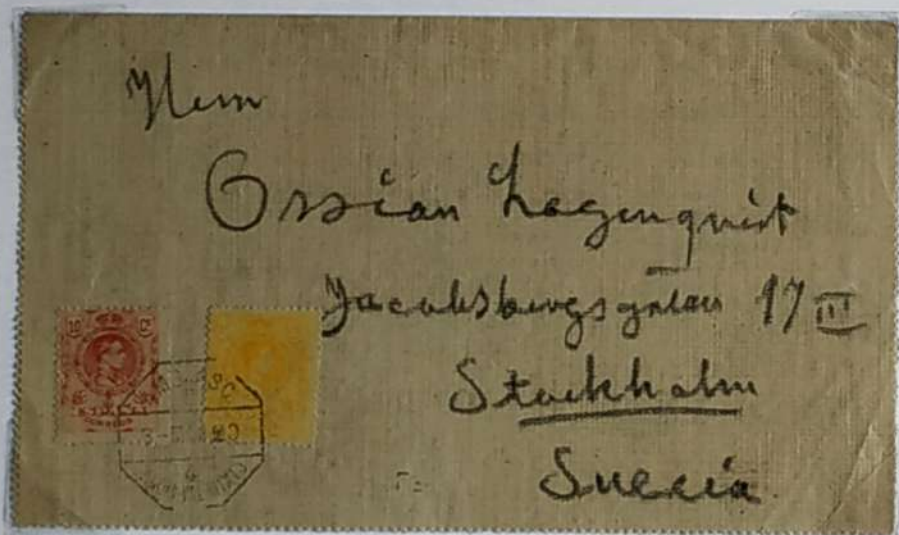 Herrn
Ossian Lagerqvist
Jacobsbergsgatan 17 III
Stockholm
Suecia